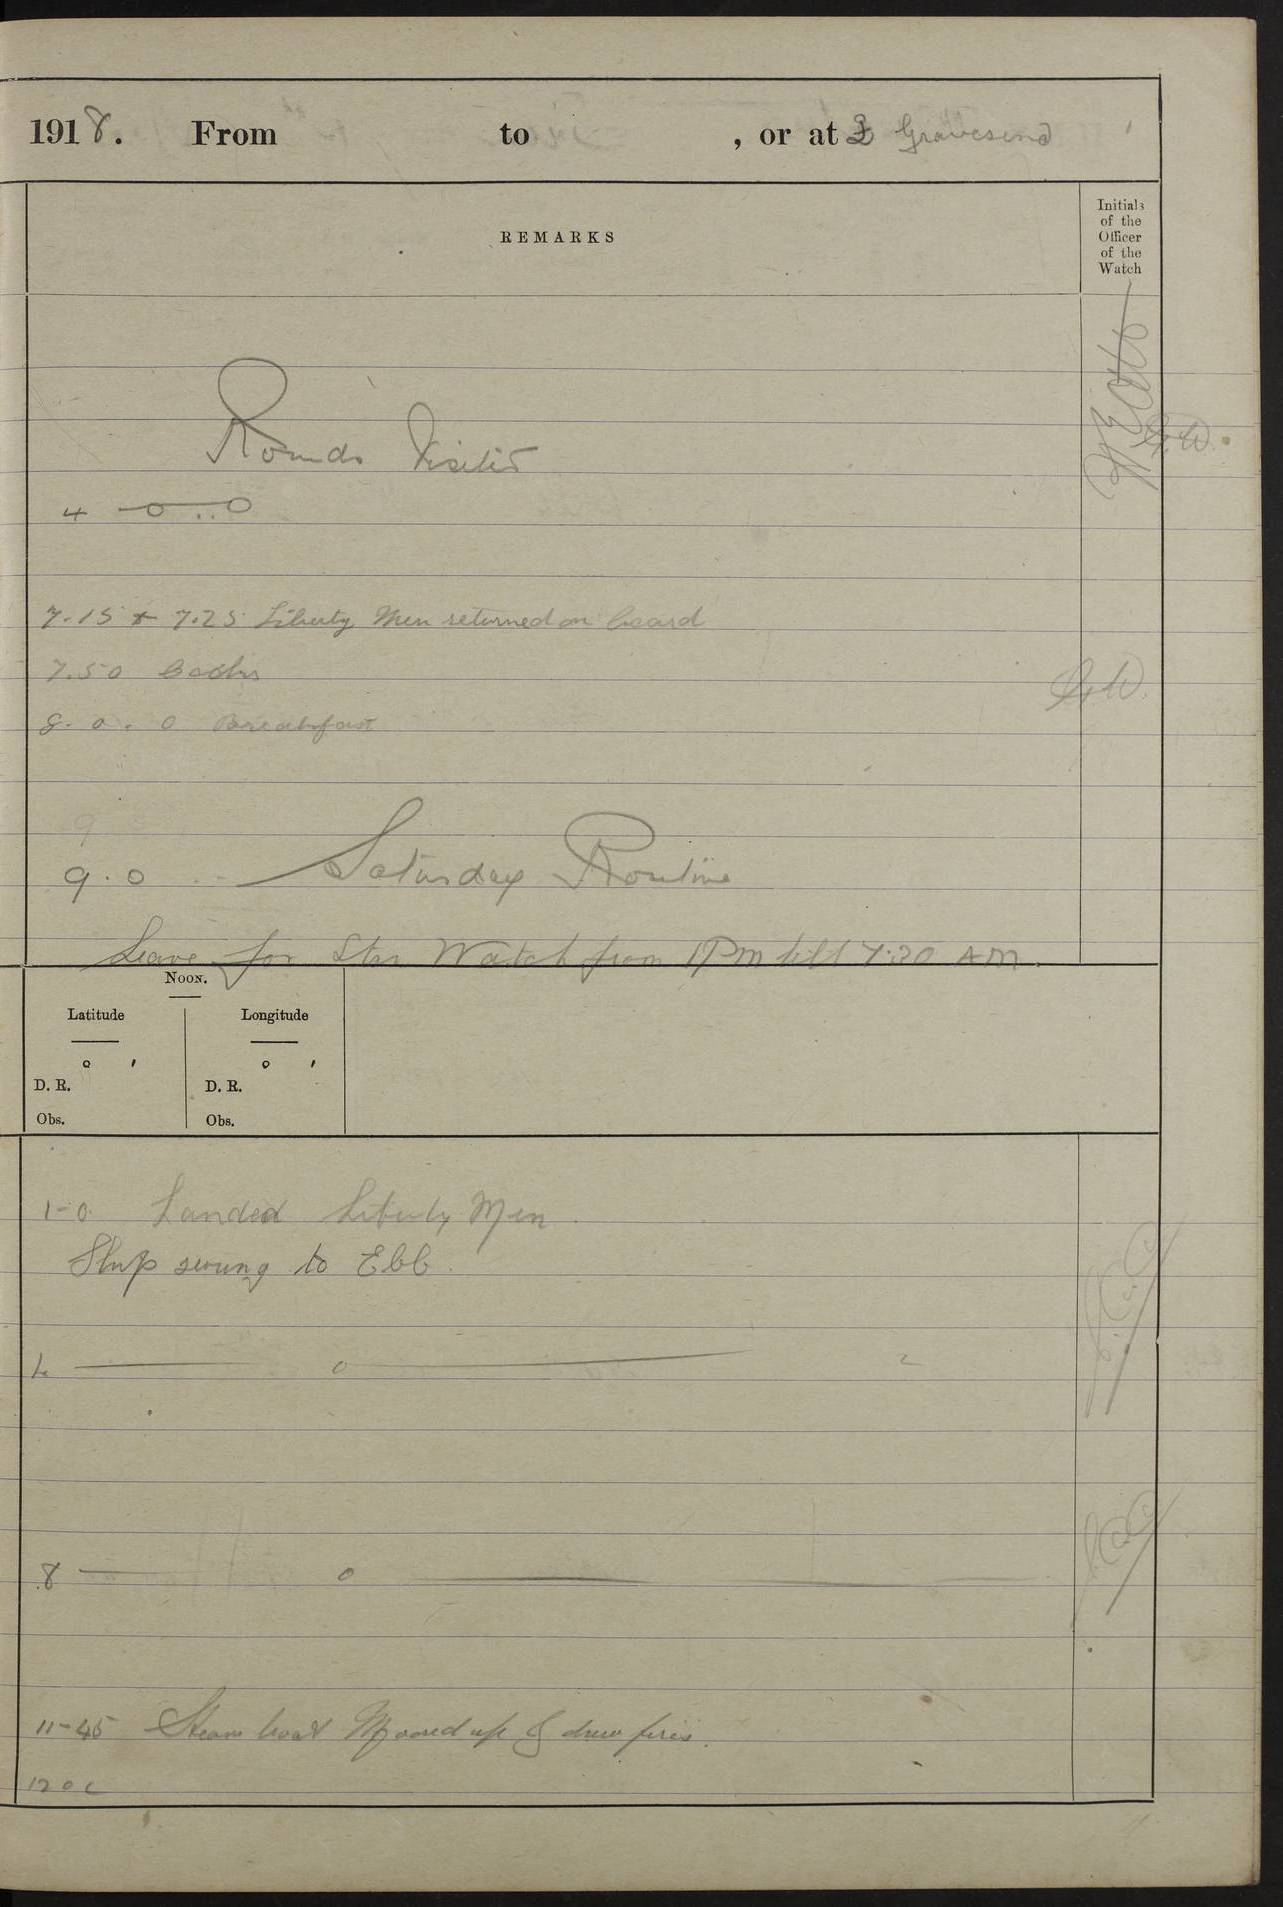 1918. From to , or at Gravesend
REMARKS
Initials
of the
Officer
of the
Watch
Rounds Visited
4
7.15 + 7.25 Liberty Men returned on board
G.W.
7.50 Cooks
8.0.0 Breakfast
9
9.0 Saturday Routine
Leave for Stbr Watch from 1 PM till 7.30 AM.
NOON.
Latitude Longitude
° ′ ° ′
D. R. D. R.
Obs. Obs.
1-0 Landed Liberty Men.
Ship swung to Ebb.
4 0
8 0
11-45 Steam boat Moored up & drew fires.
12 0